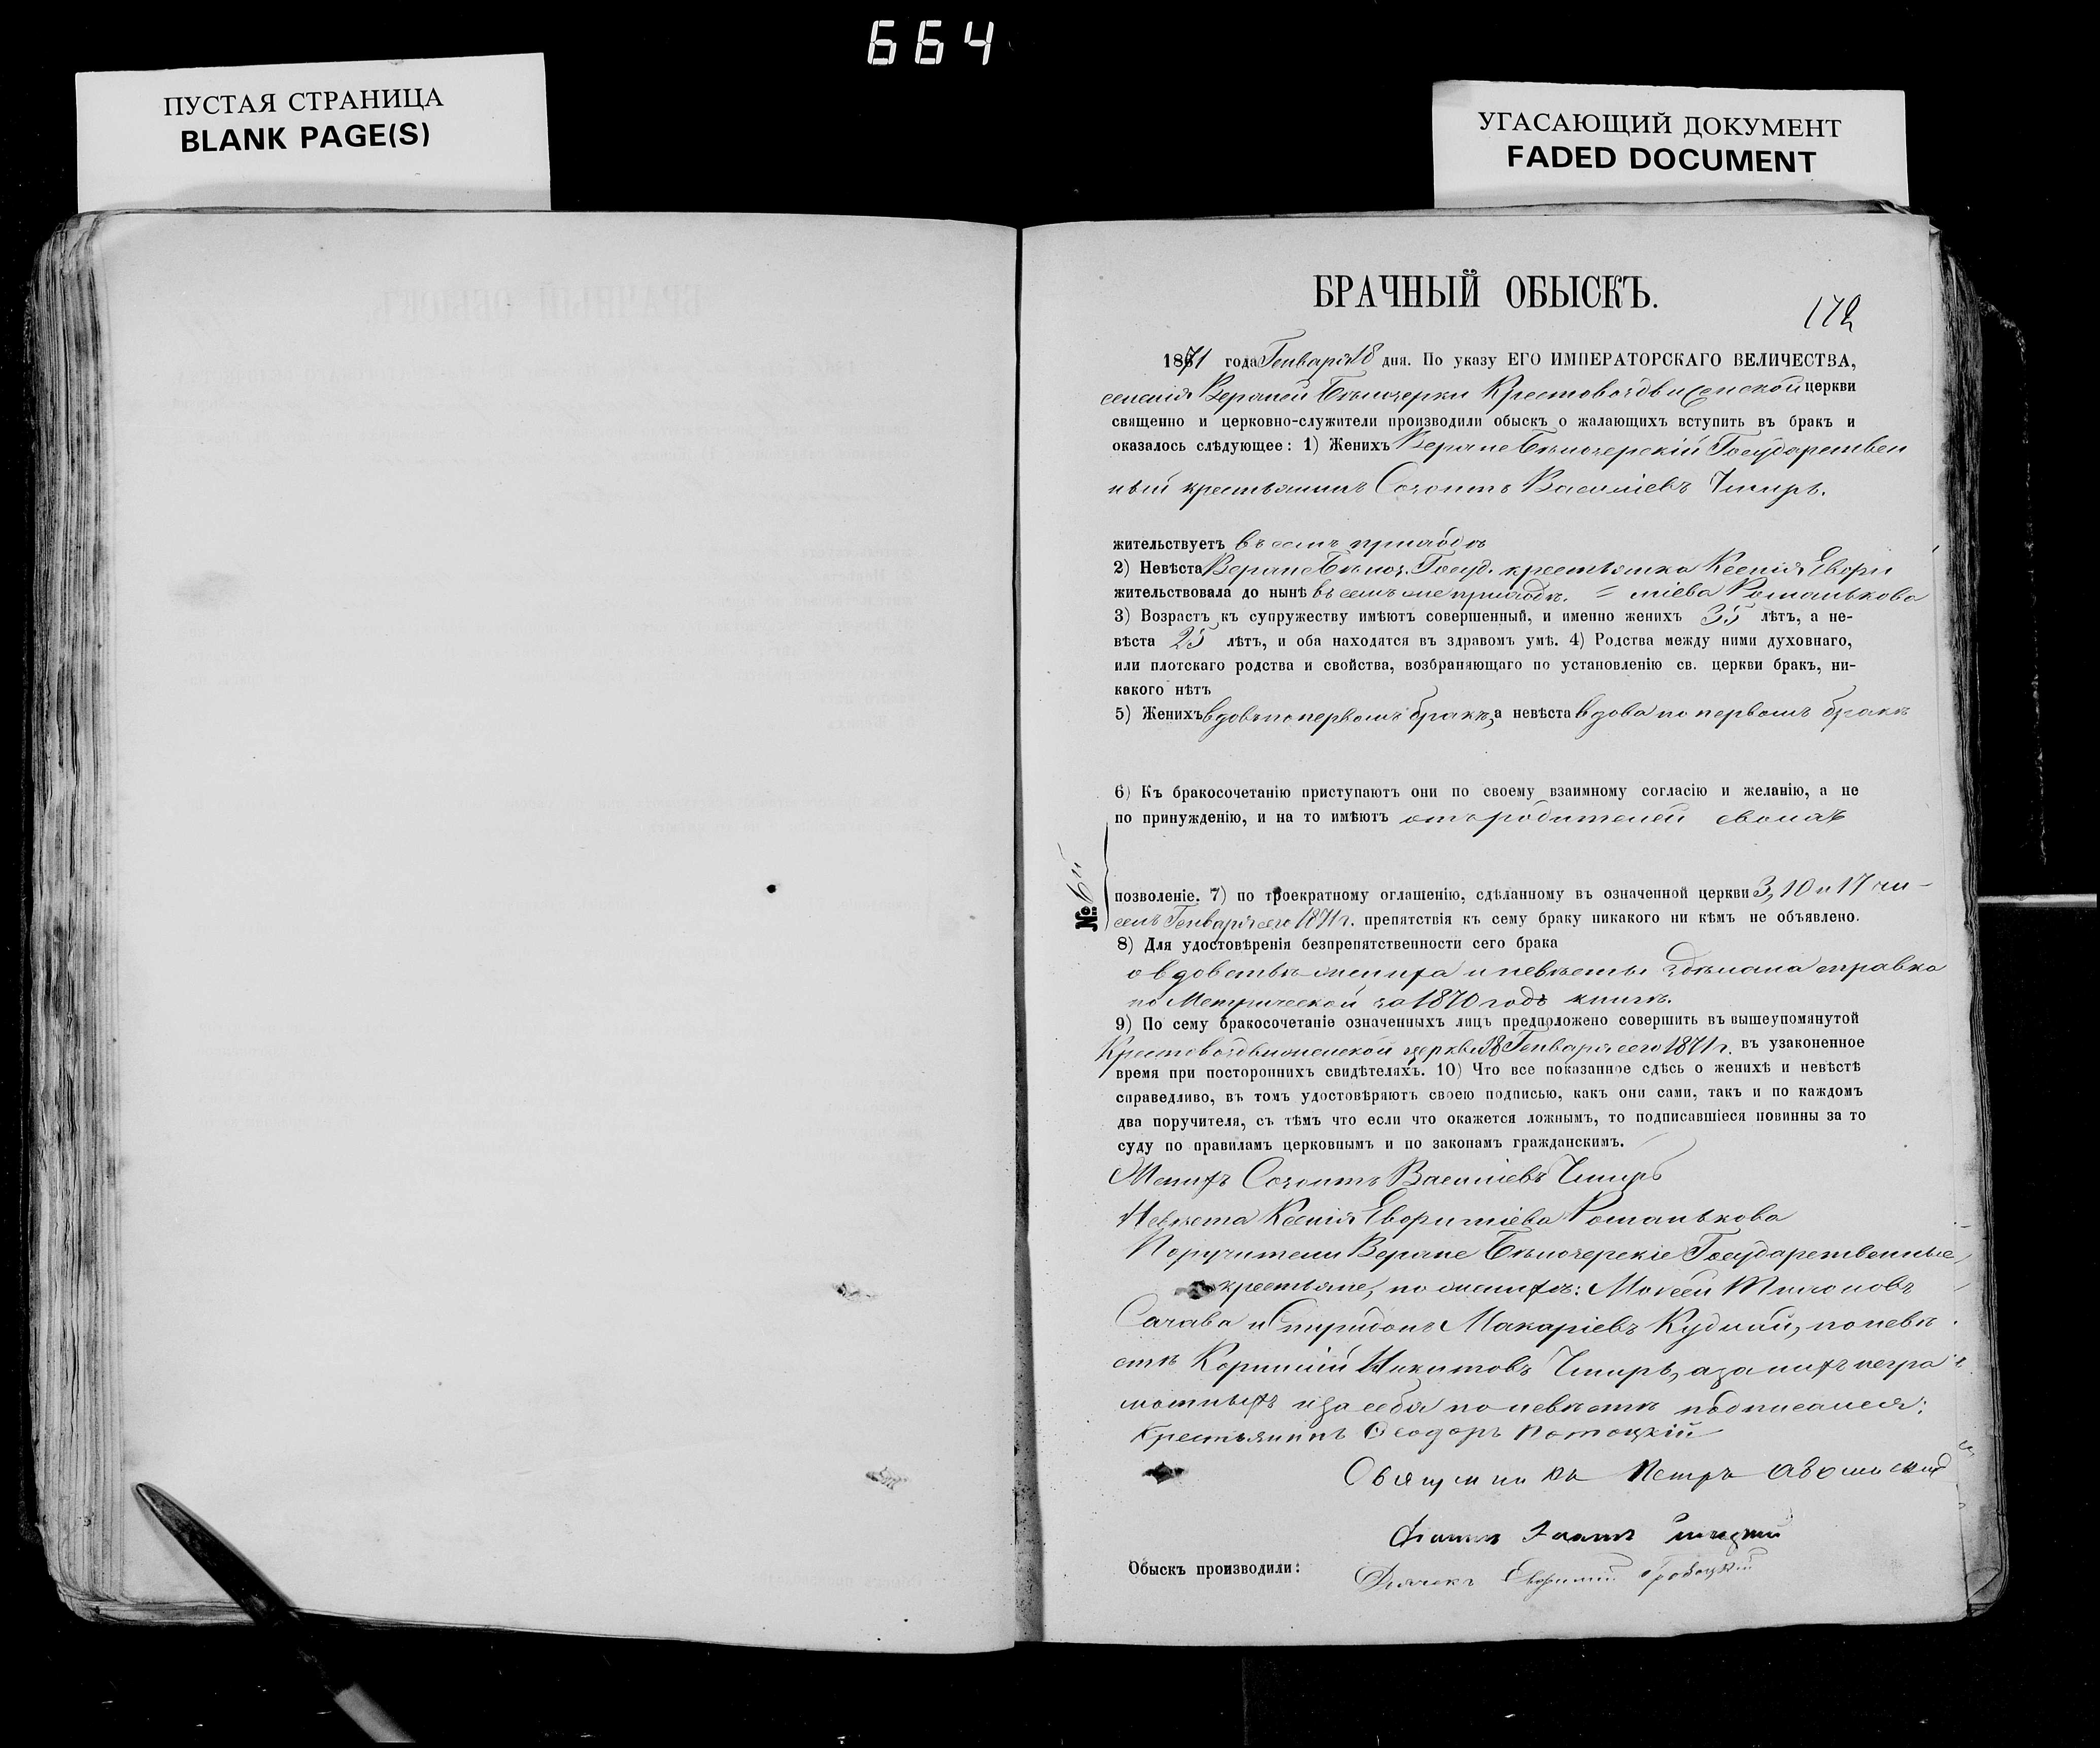 664
ПУСТАЯ СТРАНИЦА
BLANK PAGE(S)
УГАСАЮЩИЙ ДОКУМЕНТ
FADED DOCUMENT
БРАЧНЫЙ ОБЫСКЪ.
172
1871 года Генваря 18 дня. По указу ЕГО ИМПЕРАТОРСКАГО ВЕЛИЧЕСТВА,
селенія Верхней Бѣлозерки Крестовоздвиженской церкви
священно и церковно-служители производили обыскъ о жалающихъ вступить въ бракъ и
оказалось слѣдующее: 1) Женихъ Верхне Бѣлозерскій Государствен
ный крестьянинъ Созонтъ Василіевъ Чмиръ.
жительствуетъ въ семъ приходѣ
2) Невѣста Верхне Бѣлоз. Госуд. крестьянка Ксенія Евфи
жительствовала до нынѣ въ семъ же приходѣ. = міева Романькова
3) Возрастъ къ супружеству имѣютъ совершенный, и именно женихъ 35 лѣтъ, а не-
вѣста 25 лѣтъ, и оба находятся въ здравомъ умѣ. 4) Родства между ними духовнаго,
или плотскаго родства и свойства, возбраняющаго по установленію св. церкви бракъ, ни-
какого нѣтъ
5) Женихъ вдовъ по первомъ бракѣ, а невѣста вдова по первомъ бракѣ
6) Къ бракосочетанію приступаютъ они по своему взаимному согласію и желанію, а не
по принужденію, и на то имѣютъ отъ родителей своихъ
№ 6й
позволеніе. 7) по троекратному оглашенію, сдѣланному въ означенной церкви 3, 10 и 17 чи-
селъ Генваря сего 1871 г. препятствія къ сему браку никакого ни кѣмъ не объявлено.
8) Для удостовѣренія безпрепятственности сего брака
о вдовствѣ жениха и невѣсты здѣлана справка
по Метрической за 1870 годъ книгѣ.
9) По сему бракосочетаніе означенныхъ лицъ предположено совершить въ вышеупомянутой
Крестовоздвиженской церкви 18 Генваря сего 1871 г. въ узаконенное
время при постороннихъ свидѣтеляхъ. 10) Что все показанное сдѣсь о женихѣ и невѣстѣ
справедливо, въ томъ удостовѣряютъ своею подписью, какъ они сами, такъ и по каждомъ
два поручителя, съ тѣмъ что если что окажется ложнымъ, то подписавшіеся повинны за то
суду по правиламъ церковнымъ и по законамъ гражданскимъ.
Женихъ Созонтъ Василіевъ Чмиръ
Невѣста Ксенія Евфиміева Романькова
Поручители Верхне Бѣлозерскіе Государственные
крестьяне, по женихѣ: Мокей Тихоновъ
Сачава и Спиридонъ Макаріевъ Кудлай, по невѣ
стѣ Корнилій Никитовъ Чмиръ, а за нихъ негра
мотныхъ и за себя по невѣстѣ подписался:
Крестьянинъ Ѳеодоръ Потоцкій
Священникъ Петръ
Іоаннъ
Обыскъ производили:
Дьячекъ Евфимій